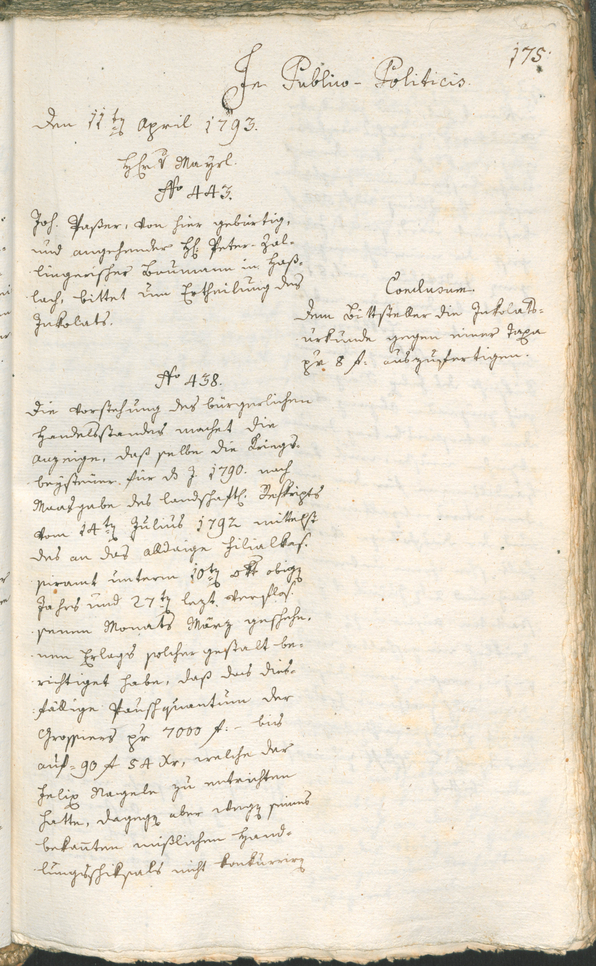 175.
In Publico-Politicis.
Den 11ten April 1793.
H: Mayrl.
No 443.
Joh. Paßer, von hier gebürtig,
und angehender H: Peter Zal-
lingerischer Baumann in Haß-
lach, bittet um Ertheilung des
Inkolats.
Conclusum
dem Bittsteller die Inkolats-
urkunde gegen einer Taxa
pr 8 f. auszufertigen.
No 438.
Die Vorstehung des bürgerlichen
Handelsstandes machet die
Anzeige, daß selbe die Kriegs-
beysteuer für das J. 1790. nach
Maasgabe des landschaftl. Reskripts
vom 14ten Julius 1792 mittelst
des an das alldaige Filialkas-
sieramt unterm 10ten Okt. obigen
Jahrs und 27ten lezt verflos-
senen Monats März geschehe-
nen Erlags solcher gestalt be-
richtiget habe, daß das dies-
fällige Paushquantum der
Grossiers pr 7000 f. bis
auf 90 f 54 xr, welche der
Felix Nagele zu entrichten
hatte, dagegen aber wegen seines
bekannten mißlichen Hand-
lungsschiksals nicht konkurrirn